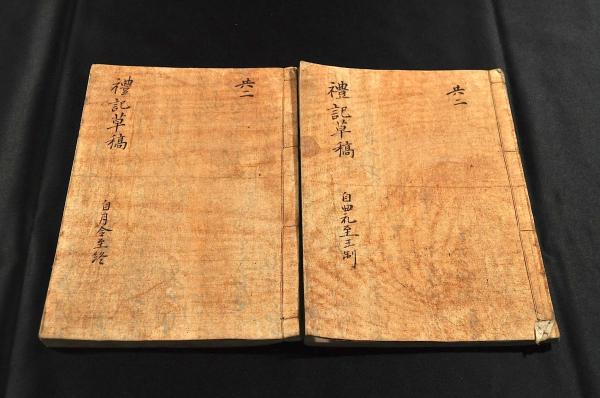 共二
禮記草稿
自曲礼至王制
共二
禮記草稿
自月令至終